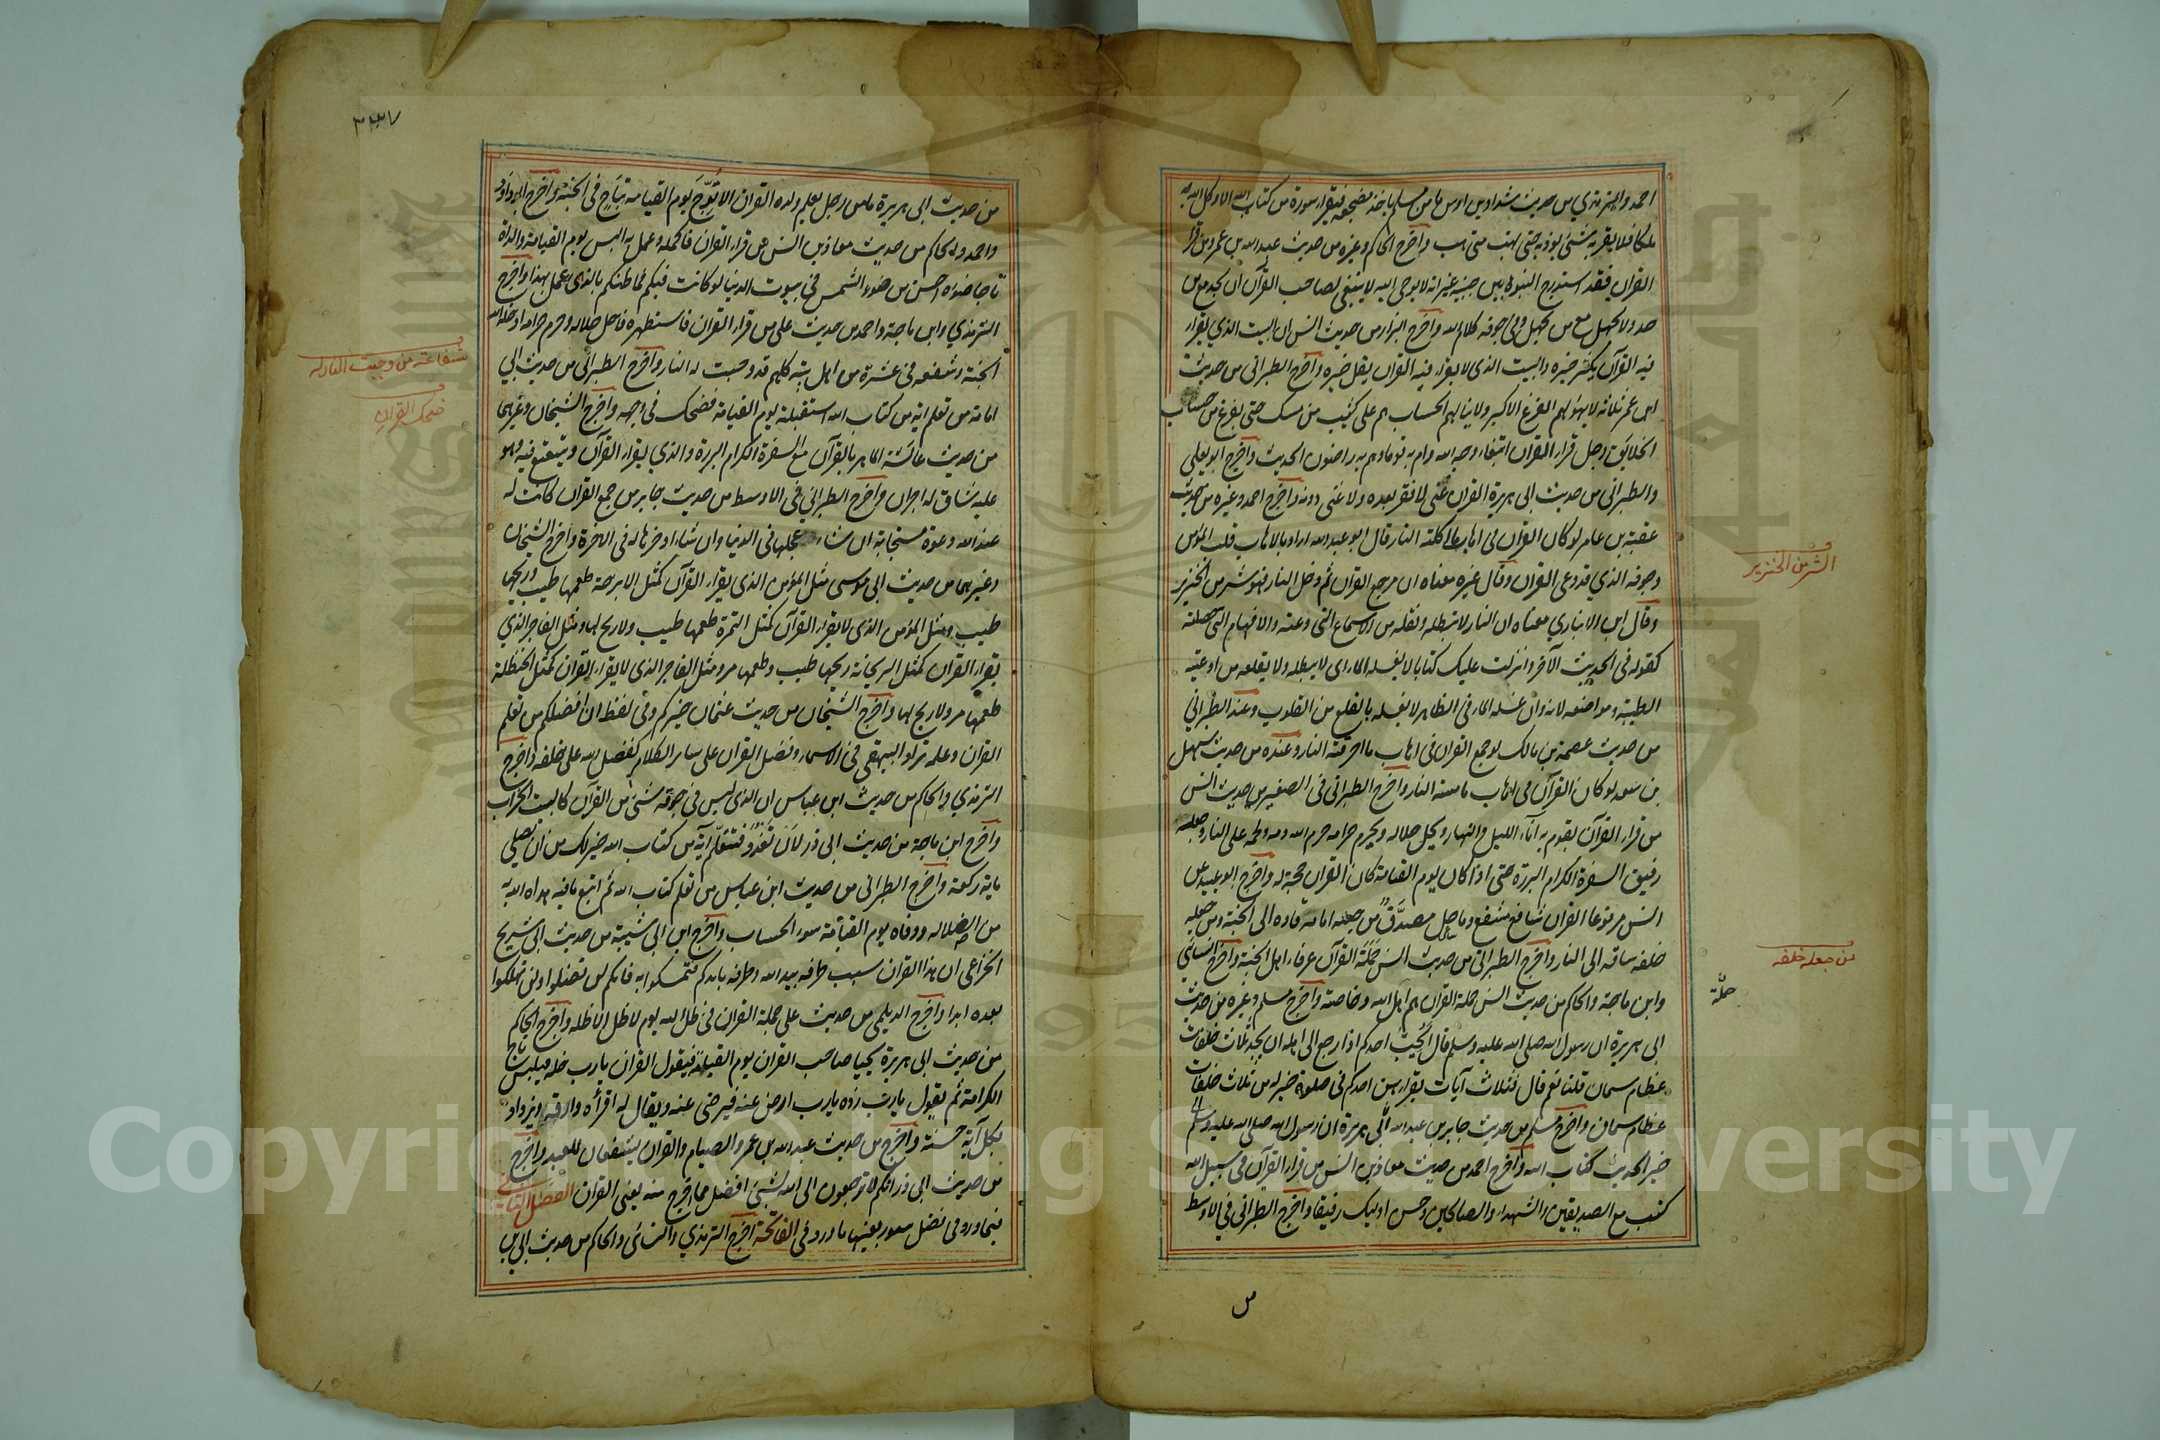 احمد والترمذي من حديث شداد بن اوس ما من مسلم ياخذ مضجعه فيقراء سورة من كتاب الله الا وكل الله به
ملكا فلا يقربه شئ يوذيه حتى يهب متى هب واخرج الحاكم وغيره من حديث عبد الله بن عمرو من قراء
القران فقد استدرج النبوة بين جنبيه غير انه لا يوحى اليه لا ينبغي لصاحب القرآن ان يجد مع من
جد ولا يجهل مع من يجهل وفي جوفه كلام الله واخرج البزار من حديث انس ان البيت الذي يقراء
فيه القرآن يكثر خيره والبيت الذي لا يقراء فيه القران يقل خيره واخرج الطبراني من حديث
ابن عمر ثلاثة لا يهولهم الفزع الاكبر ولا ينالهم الحساب هم على كثيب من مسك حتى يفرغ من حساب
الخلايق رجل قراء القران ابتغاء وجه الله وام به قوما وهم به راضون الحديث واخرج ابو يعلى
والطبراني من حديث ابى هريرة القران غنى لا فقر بعده ولا غنى دونه واخرج احمد وغيره من حديث
عقبة بن عامر لو كان القران في اهاب ما اكلته النار قال ابو عبد الله اراد بالاهاب قلب المؤمن
وجوفه الذي قد وعى القران وقال غيره معناه ان من جمع القران ثم دخل النار فهو شر من الخنزير
وقال ابن الانباري معناه ان النار لا تبطله ونقله من الاسماع التى وعته والافهام التى حصلته
كقوله في الحديث الآخر وانزلت عليك كتابا لا يغسله الماء اى لا يبطله ولا يقلعه من اوعيته
الطيبة ومواضعه لانه وان غسله الماء في الظاهر لا يغسله بالقلع من القلوب وعند الطبراني
من حديث عصمة بن مالك لو جمع القران في اهاب ما احرقته النار وعنده من حديث سهل
بن سعد لو كان القرآن في اهاب ما مسته النار واخرج الطبراني في الصغير من حديث انس
من قراء القرآن يقوم به آناء الليل والنهار ويحل حلاله ويحرم حرامه حرم الله دمه ولحمه على النار وجعله
رفيق السفرة الكرام البررة حتى اذا كان يوم القيامة كان القران حجة له واخرج ابو عبيد عن
انس مرفوعا القران شافع مشفع وماحل مصدق من جعله امامه قاده الى الجنة ومن جعله
خلفه ساقه الى النار واخرج الطبراني من حديث انس حملة القرآن عرفاء اهل الجنة واخرج النسائي
وابن ماجة والحاكم من حديث انس حملة القران هم اهل الله وخاصته واخرج مسلم وغيره من حديث
ابى هريرة ان رسول الله صلى الله عليه وسلم قال ايحب احدكم اذا رجع الى اهله ان يجد ثلاث خلفات
عظام سمان قلنا نعم قال فثلاث آيات يقراء بهن احدكم في صلوة خير له من ثلاث خلفات
عظام سمان واخرج مسلم من حديث جابر بن عبد الله ابى هريرة ان رسول الله صلى الله عليه وسلم
خير الحديث كتاب الله واخرج احمد من حديث معاذ بن انس من قراء القرآن في سبيل الله
كتب مع الصديقين والشهداء والصالحين وحسن اوليك رفيقا واخرج الطبراني في الاوسط
من
الشر من الخنزير
من جعله خلفه
حملة
٢٣٧
من حديث ابى هريرة ما من رجل يعلم ولده القران الا توج يوم القيامة بتاج في الجنة واخرج ابو داود
واحمد والحاكم من حديث معاذ بن انس من قراء القران فاكمله وعمل به البس يوم القيامة والداه
تاجا ضوءه احسن من ضوء الشمس في بيوت الدنيا لو كانت فيكم فما ظنكم بالذى عمل بهذا واخرج
الترمذي وابن ماجة واحمد من حديث على من قراء القران فاستظهره فاحل حلاله وحرم حرامه ادخله الله
الجنة وشفعه في عشرة من اهل بيته كلهم قد وجبت له النار واخرج الطبراني من حديث ابي
امامة من تعلم اية من كتاب الله استقبلته يوم القيامة تضحك في وجهه واخرج الشيخان وغيرهما
من حديث عائشة الماهر بالقرآن مع السفرة الكرام البررة والذي يقراء القرآن ويتتعتع فيه وهو
عليه شاق له اجران واخرج الطبراني في الاوسط من حديث جابر من جمع القرآن كانت له
عند الله دعوة مستجابة ان شاء عجلها في الدنيا وان شاء ادخرها له في الاخرة واخرج الشيخان
وغيرهما من حديث ابى موسى مثل المؤمن الذى يقراء القرآن كمثل الاترجة طعمها طيب وريحها
طيب ومثل المؤمن الذى لا يقراء القرآن كمثل التمرة طعمها طيب ولا ريح لها ومثل الفاجر الذي
يقراء القران كمثل الريحانة ريحها طيب وطعمها مر ومثل الفاجر الذى لا يقراء القران كمثل الحنظلة
طعمها مر ولا ريح لها واخرج الشيخان من حديث عثمان خيركم وفي لفظ ان افضلكم من تعلم
القران وعلمه زاد البيهقي في الاسماء وفضل القران على سائر الكلام كفضل الله على خلقه واخرج
الترمذي والحاكم من حديث ابن عباس ان الذى ليس في جوفه شئ من القرآن كالبيت الخراب
واخرج ابن ماجة من حديث ابى ذر لان تغدو فتتعلم آية من كتاب الله خير لك من ان تصلى
ماية ركعة واخرج الطبراني من حديث ابن عباس من تعلم كتاب الله ثم اتبع ما فيه هداه الله به
من الضلاله ووقاه يوم القيامة سوء الحساب واخرج ابن ابى شيبة من حديث ابى شريح
الخزاعى ان هذا القران سبب طرفه بيد الله وطرفه بايديكم فتمسكوا به فانكم لن تضلوا ولن تهلكوا
بعده ابدا واخرج الديلمى من حديث على حملة القران في ظل الله يوم لا ظل الا ظله واخرج الحاكم
من حديث ابى هريرة يجئ صاحب القران يوم القيامة فيقول القران يارب حله فيلبس تاج
الكرامة ثم يقول يارب زده يارب ارض عنه فيرضى عنه ويقال له اقراه وارقه ويزداد
بكل آية حسنة واخرج من حديث عبد الله بن عمر والصيام والقران يشفعان للعبد واخرج
من حديث ابى ذر انكم لا ترجعون الى الله لشئ افضل مما خرج منه يعنى القران الفصل الثاني
فيما ورد في فضل سور بعينها ما ورد في الفاتحة اخرج الترمذي والنسائى والحاكم من حديث ابى بن
شفاعته من وجبت النار له
ضحك القران
Copyright © King Saud University